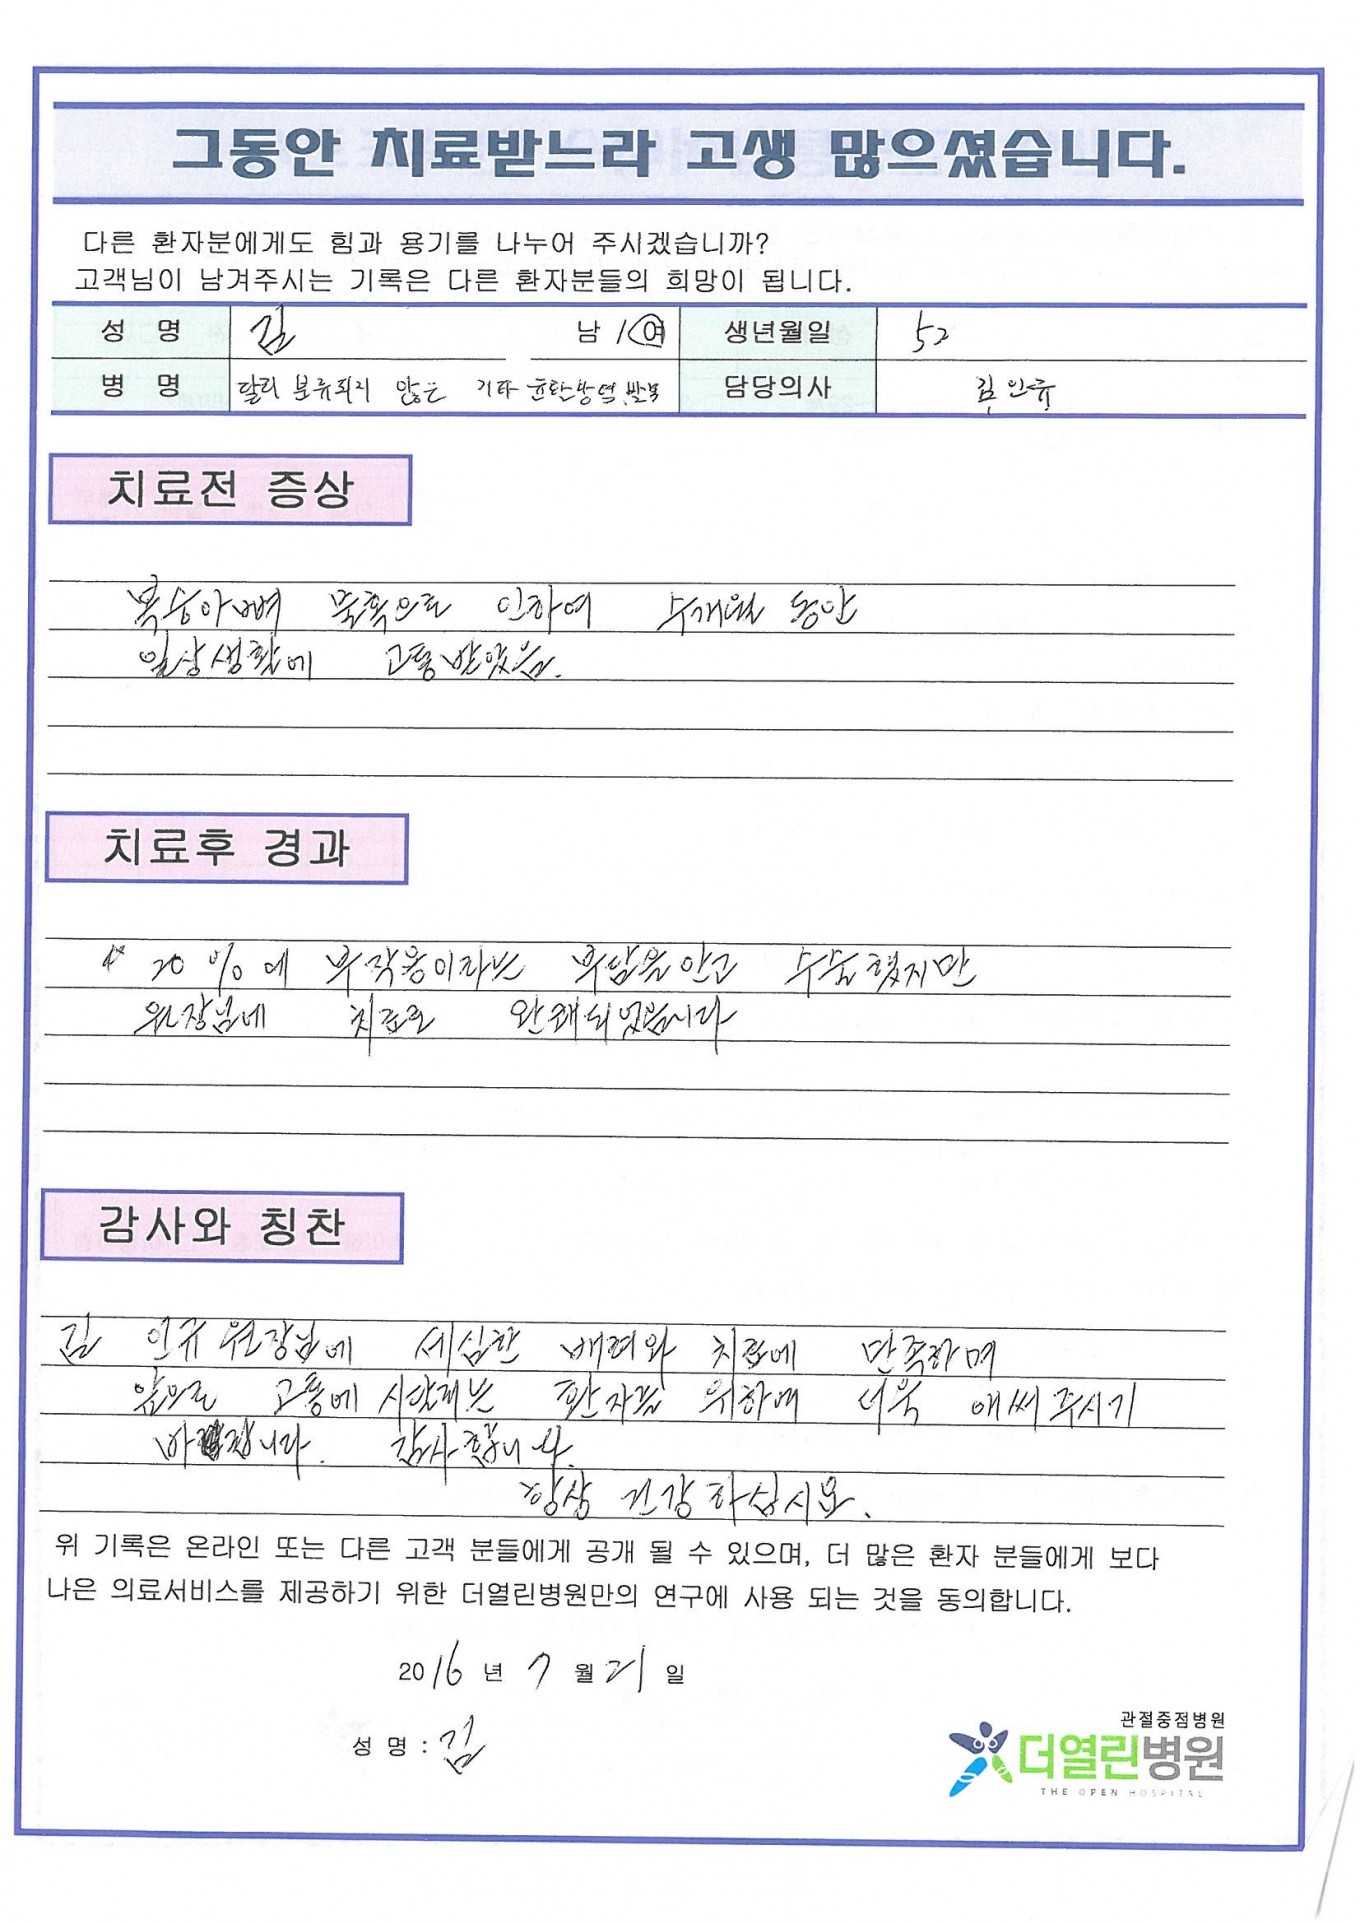 그동안 치료받느라 고생 많으셨습니다.
다른 환자분에게도 힘과 용기를 나누어 주시겠습니까?
고객님이 남겨주시는 기록은 다른 환자분들의 희망이 됩니다.
성 명 김 남 / 여 생년월일 52
병 명 달리 분류되지 않은 기타 윤활낭염, 발목 담당의사 김인규
치료전 증상
복숭아뼈 물혹으로 인하여 수개월 동안
일상생활에 고통받았음.
치료후 경과
20%에 부작용이라는 부담을 안고 수술했지만
원장님에 치료로 완쾌되었습니다
감사와 칭찬
김 인규 원장님에 세심한 배려와 치료에 만족하며
앞으로 고통에 시달리는 환자를 위하여 더욱 애써주시기
바랍니다. 감사합니다.
항상 건강하십시요.
위 기록은 온라인 또는 다른 고객 분들에게 공개 될 수 있으며, 더 많은 환자 분들에게 보다
나은 의료서비스를 제공하기 위한 더열린병원만의 연구에 사용 되는 것을 동의합니다.
2016 년 7 월 21 일
성 명 : 김
관절중점병원
더열린병원
THE OPEN HOSPITAL